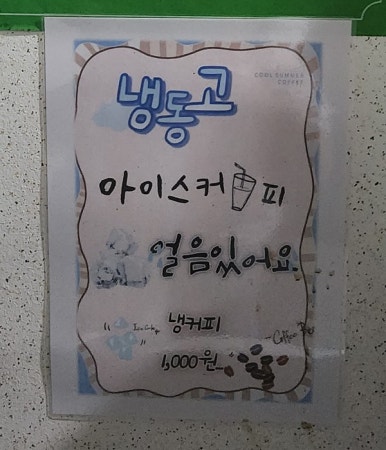 냉동고
COOL SUMMER
COFFEE
아이스커피
얼음있어요.
냉커피
1,000원